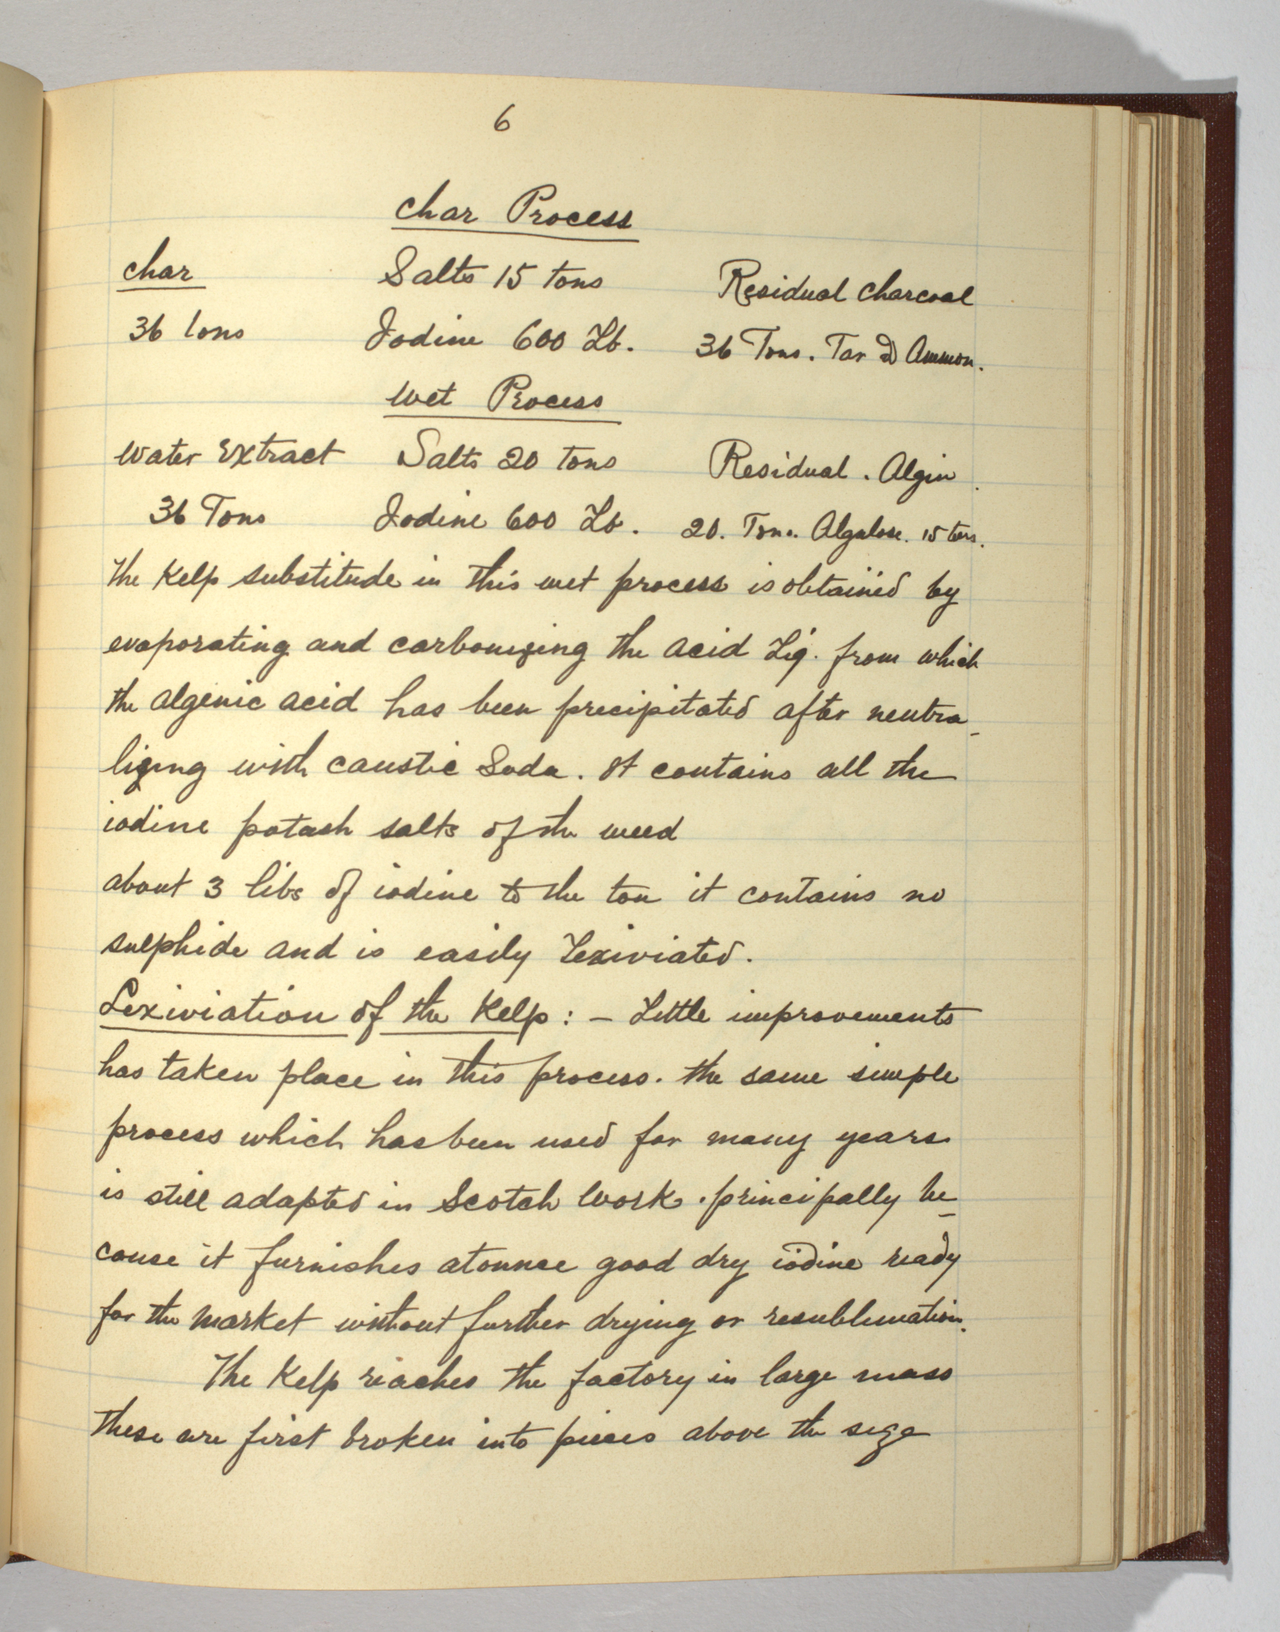 6
Char Process
Char Salts 15 tons Residual Charcoal
36 Tons Iodine 600 Lb. 36 Tons. Tar & Ammon.
Wet Process
Water Extract Salts 20 tons Residual. Algin
36 Tons Iodine 600 Lb. 20. Tons. Algulose. 15 tons.
The Kelp substitude in this wet process is obtained by
evaporating and carbonizing the acid Liq. from which
the algenic acid has been precipitated after neutra-
lizing with caustic Soda. It contains all the
iodine potash salts of the weed
about 3 libs of iodine to the ton it contains no
sulphide and is easily Lexiviated.
Lexiviation of the Kelp: - Little improvements
has taken place in this process. the same simple
process which has been used for many years
is still adapted in Scotch Work. principally be-
cause it furnishes atonnce good dry iodine ready
for the market without further drying or resublimation.
The Kelp reaches the factory in large mass
these are first broken into pieces above the size